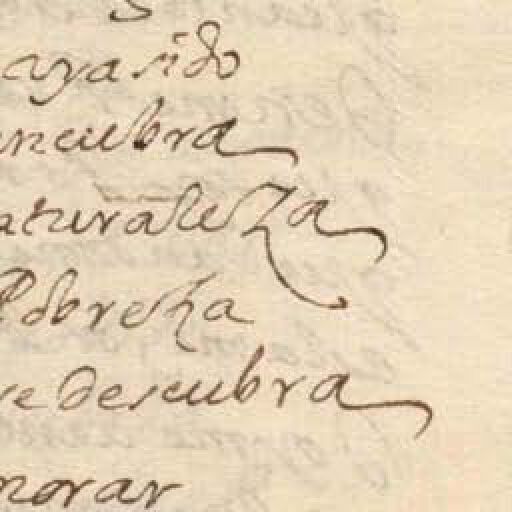 aya sido
encubra
aturaleza
Pobreza
se descubra
morar